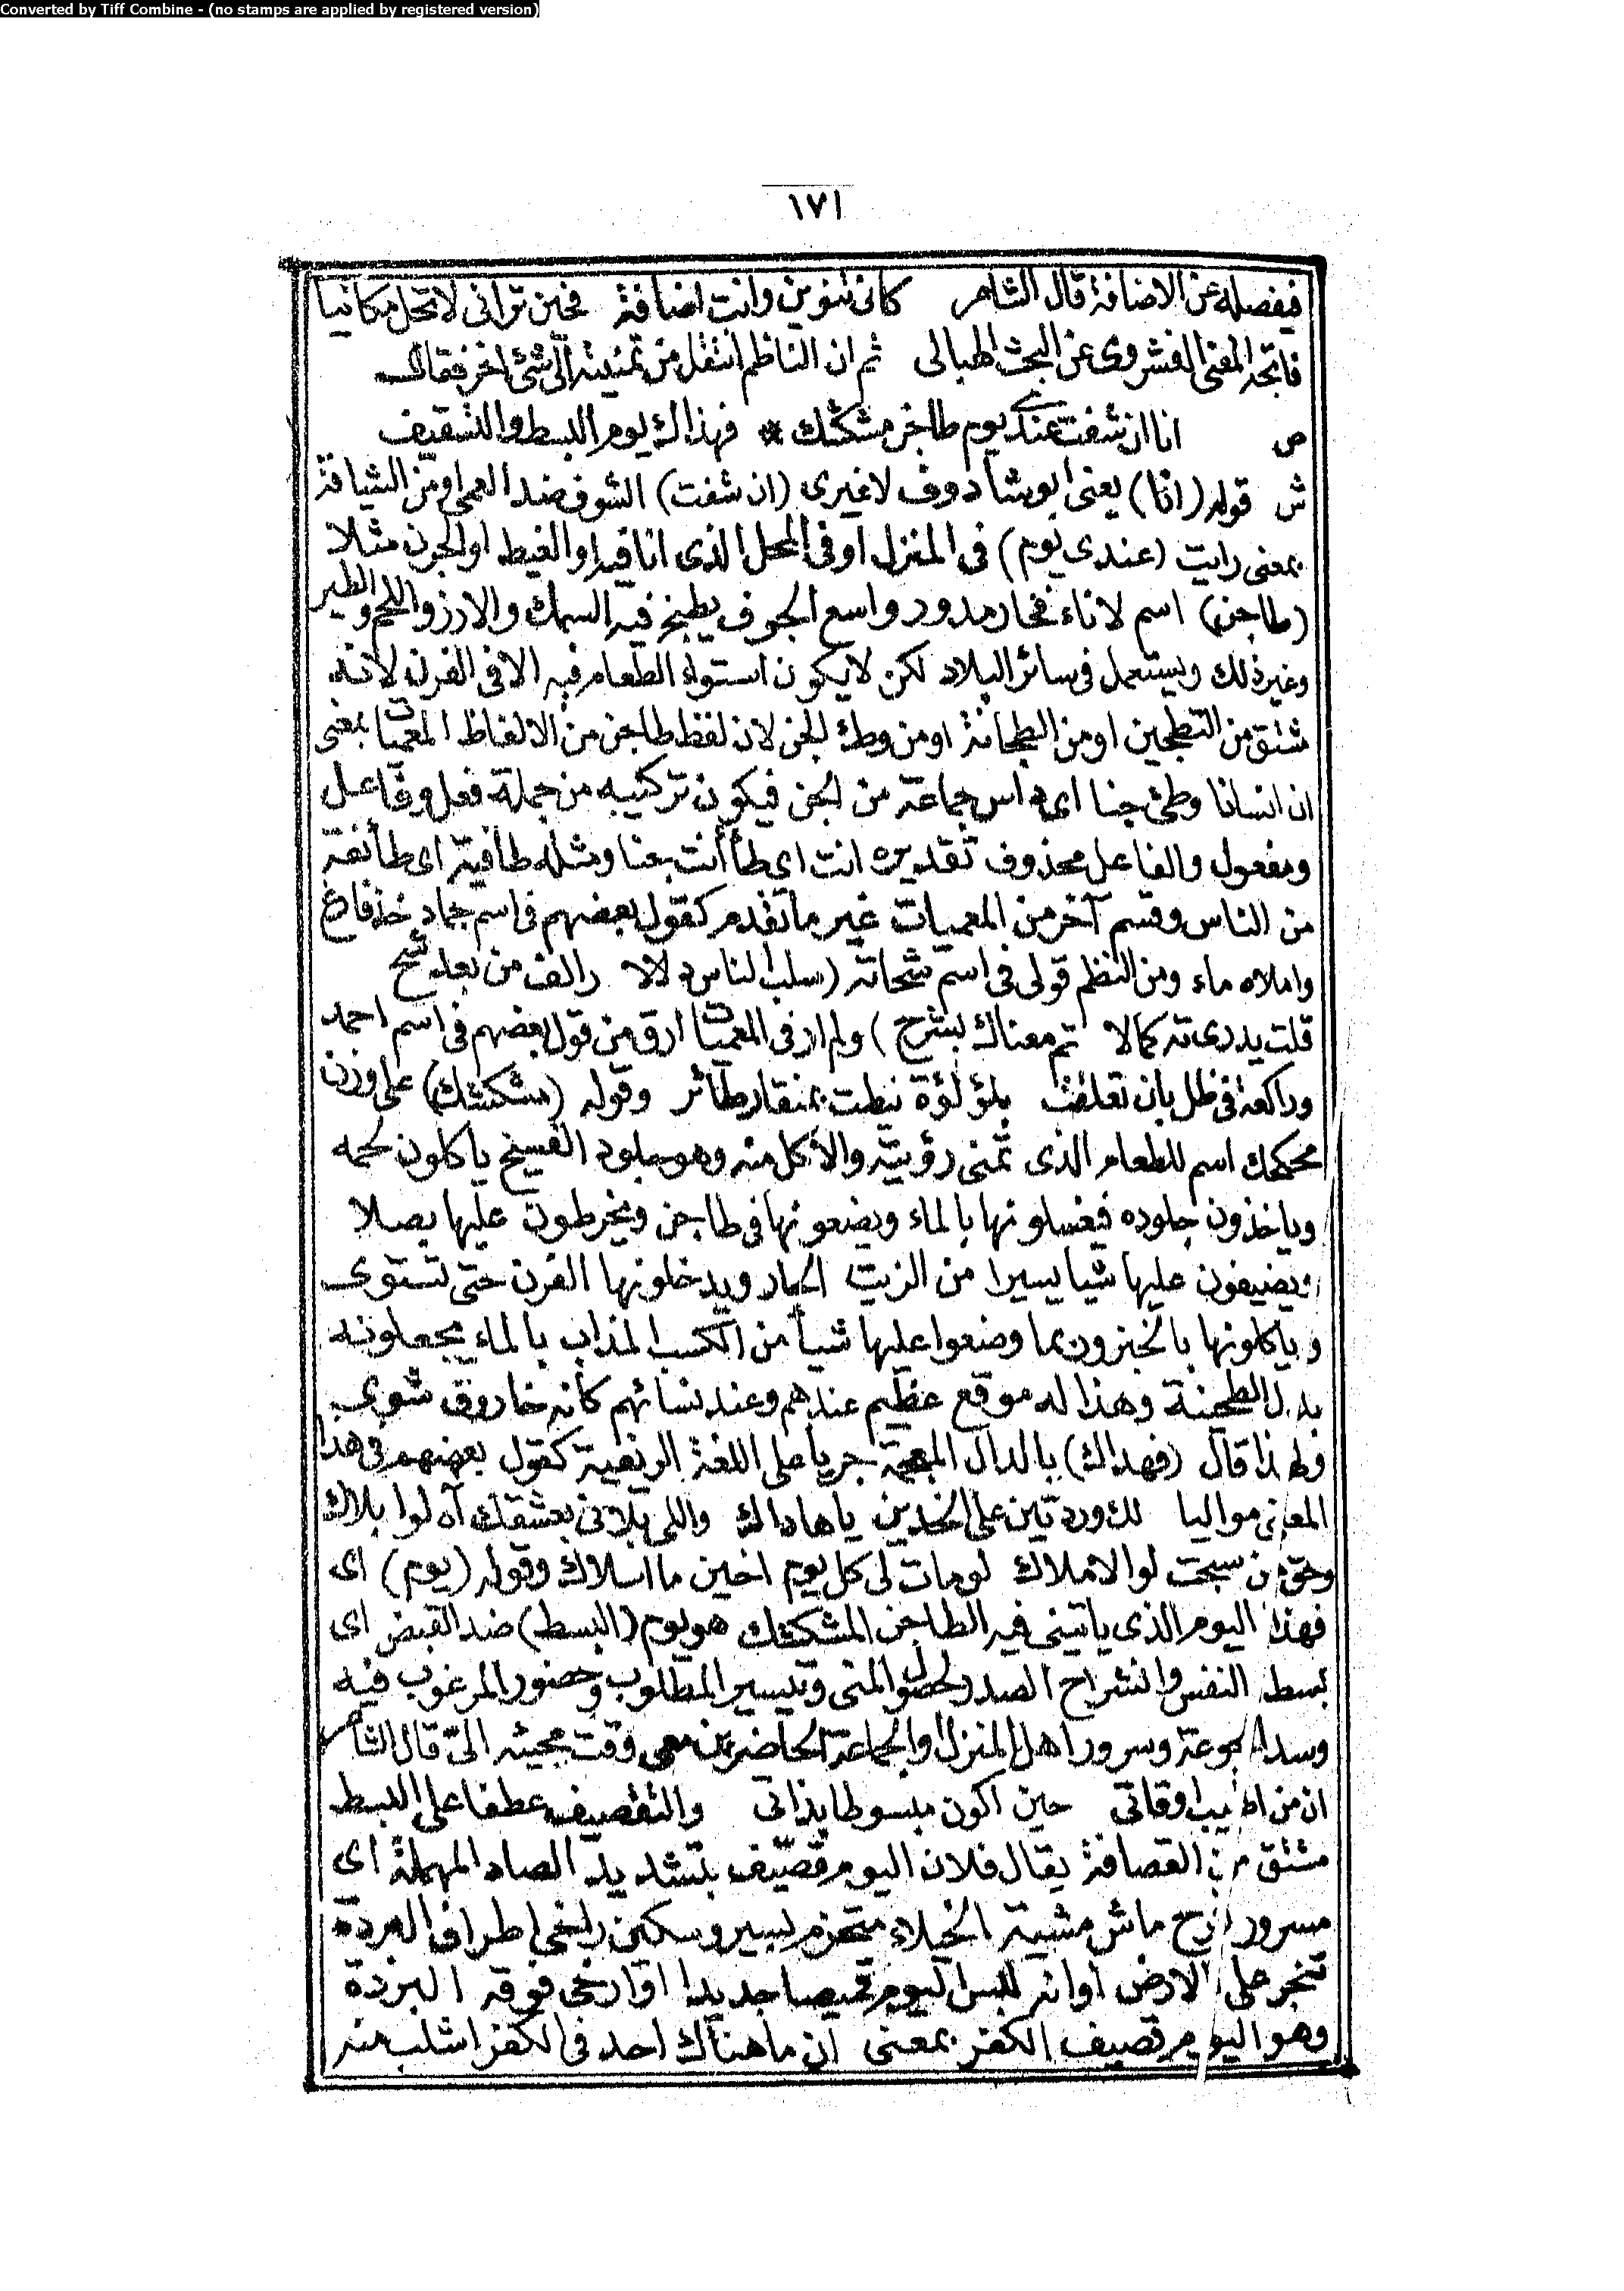 Converted by Tiff Combine - (no stamps are applied by registered version)
١٧١
فيفصله عن الاضافة قال الشاعر كانى تنوين وانت اضافة فحين ترانى لا تحل مكانيا
فاتجه المعنى الفشروى عن البحث الهبالى ثم ان الناظم انتقل من تمنيته الى شئ اخر فقال
ص انا ان شفت عندى يوم طاجن مشكشك * فهذاك يوم البسط والتقصيف
ش قوله (انا) يعنى ابو شادوف لا غيرى (ان شفت) الشوف ضد العمى او من الشيافة
بمعنى رايت (عندى يوم) فى المنزل او فى المحل الذى انا فيه او الغيط او الجرن مثلا
(طاجن) اسم لاناء فخار مدور واسع الجوف يطبخ فيه السمك والارز واللحم والطير
وغير ذلك ويستعمل فى سائر البلاد لكن لا يكون استواء الطعام فيه الا فى الفرن لانه
مشتق من التطجين او من الطجانة او من وطئ الجن لان لفظ طاجن من الالفاظ المعميات بمعنى
ان انسانا وطئ جنا اى داس جماعة من الجن فيكون تركيبه من جملة فعل وفاعل
ومفعول والفاعل محذوف تقديره انت اى طأ أنت جنا ومثله طافية اى طا ئفة
من الناس وقسم آخر من المعميات غير ما تقدم كقول بعضهم فى اسم حماد خذ فارغ
واملاه ماء ومن النظم قولى فى اسم شحاته (سلب الناس دلالا رالف من بعد شح
قلت يدرى ته كمالا تم معناك بشرح) ولم ار فى المعميات ارق من قول بعضهم فى اسم احمد
وراكعة فى ظل بان تعلقت بلؤلؤة نيطت بمنقار طائر وقوله (مشكشك) على وزن
محكحك اسم للطعام الذى تمنى رؤيته والاكل منه وهو جلود الفسيخ ياكلون لحمه
وياخذون جلوده فيغسلونها بالماء ويضعونها فى طاجن ويخرطون عليها بصلا
ويضيفون عليها شيا يسيرا من الزيت الحار ويدخلونها الفرن حتى تستوى
وياكلونها بالخبز وربما وضعوا عليها شيأ من الكسب المذاب بالماء يجعلونه
بدل الطحينة وهذا له موقع عظيم عندهم وعند نسائهم كأنه خاروف شوى
ولهذا قال (فهداك) بالدال المهملة جريا على اللغة الريفية كقول بعضهم فى هذا
المعنى مواليا لك وردتين على الخدين يا هاداك واللى بلانى بعشقك آه لوا بلاك
وحق من سبحت لوا الاملاك لو مات لى كل يوم اخين ما اسلاك وقوله (يوم) اى
فهذا اليوم الذى ياتينى فيه الطاجن المشكشك هو يوم (البسط) ضد القبض اى
بسط النفس وانشراح الصدر لحصول المنى وتيسير المطلوب وحضور المرغوب فيه
وسد الجوعة وسرور اهل المنزل والجماعة الحاضرين معى وقت مجيئه الىّ قال الشاعر
ان من اطيب اوقاتى حين اكون مبسوطا بذاتى والتقصيف عطفا على البسط
مشتق من القصافة يقال فلان اليوم قصّيف بتشديد الصاد المهملة اى
مسرور فرح ماش مشية الخيلاء متحزم بسير وسكين راخى اطراف البردة
تنجر على الارض او انه لابس اليوم قميصا جديدا او ارخى فوقه البردة
وهو اليوم قصيف الكفر بمعنى ان ما هناك احد فى الكفر اشلب منه